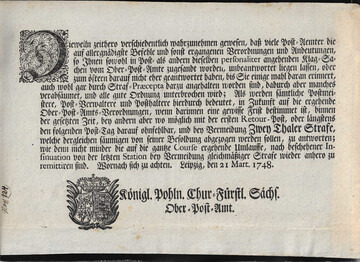 Dieweiln zeithero verschiedentlich wahrzunehmen gewesen, daß viele Post-Aemter die
auf allergnädigste Befehle und sonst ergangenen Verordnungen und Andeutungen,
so Ihnen sowohl in Post- als andern dieselben personaliter angehenden Klag-Sa-
chen vom Ober-Post-Amte zugesandt worden, unbeantwortet liegen lassen, oder
zum öftern darauf nicht eher geantwortet haben, bis Sie einige mahl daran erinnert,
auch wohl gar durch Straf-Præcepta darzu angehalten worden sind, dadurch aber manches
verabsäumet, und alle gute Ordnung unterbrochen wird: Als werden sämtliche Postmei-
stere, Post-Verwaltere und Posthaltere hierdurch bedeutet, in Zukunft auf die ergehende
Ober-Post-Amts-Verordnungen, wenn darinnen eine gewisse Frist bestimmet ist, binnen
der gesetzten Zeit, bey andern aber wo möglich mit der ersten Retour-Post, oder längstens
den folgenden Post-Tag darauf ohnfehlbar, und bey Vermeidung Zwey Thaler Strafe,
welche dergleichen säumigen von seiner Besoldung abgezogen werden sollen, zu antworten;
wie denn nicht minder die auf die ganze Course ergehende Umlauffe, nach beschehener In-
sinuation von der letzten Station bey Vermeidung gleichmäßiger Strafe wieder anhero zu
remittiren sind. Wornach sich zu achten. Leipzig, den 21 Mart. 1748.
Königl. Pohln. Chur-Fürstl. Sächs.
Ober-Post-Amt.